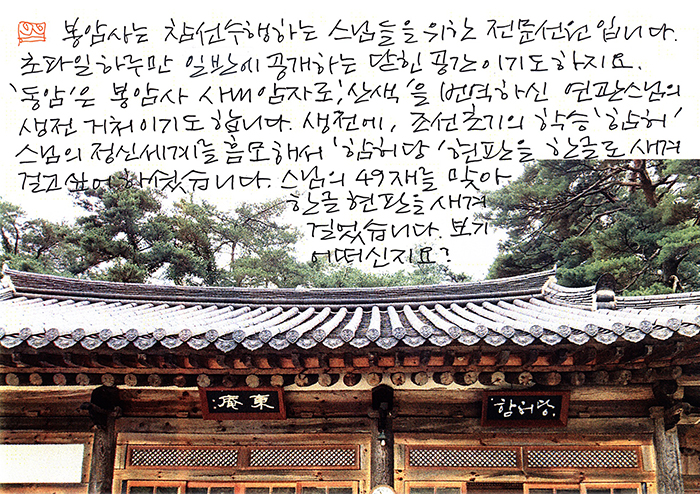 봉암사는 참선수행하는 스님들을 위한 전문선원입니다.
초파일하루만 일반에 공개하는 닫힌 공간이기도하지요.
'동암'은 봉암사 사내암자로, '산색'을 번역하신 연관스님의
생전 거처이기도 합니다. 생전에, 조선초기의 학승 '함허'
스님의 정신세계를 흠모해서 '함허당' 현판을 한글로 새겨
걸고싶어 하셨습니다. 스님의 49재를 맞아
한글현판을 새겨
걸었습니다. 보기
어떠신지요?
東庵
함허당